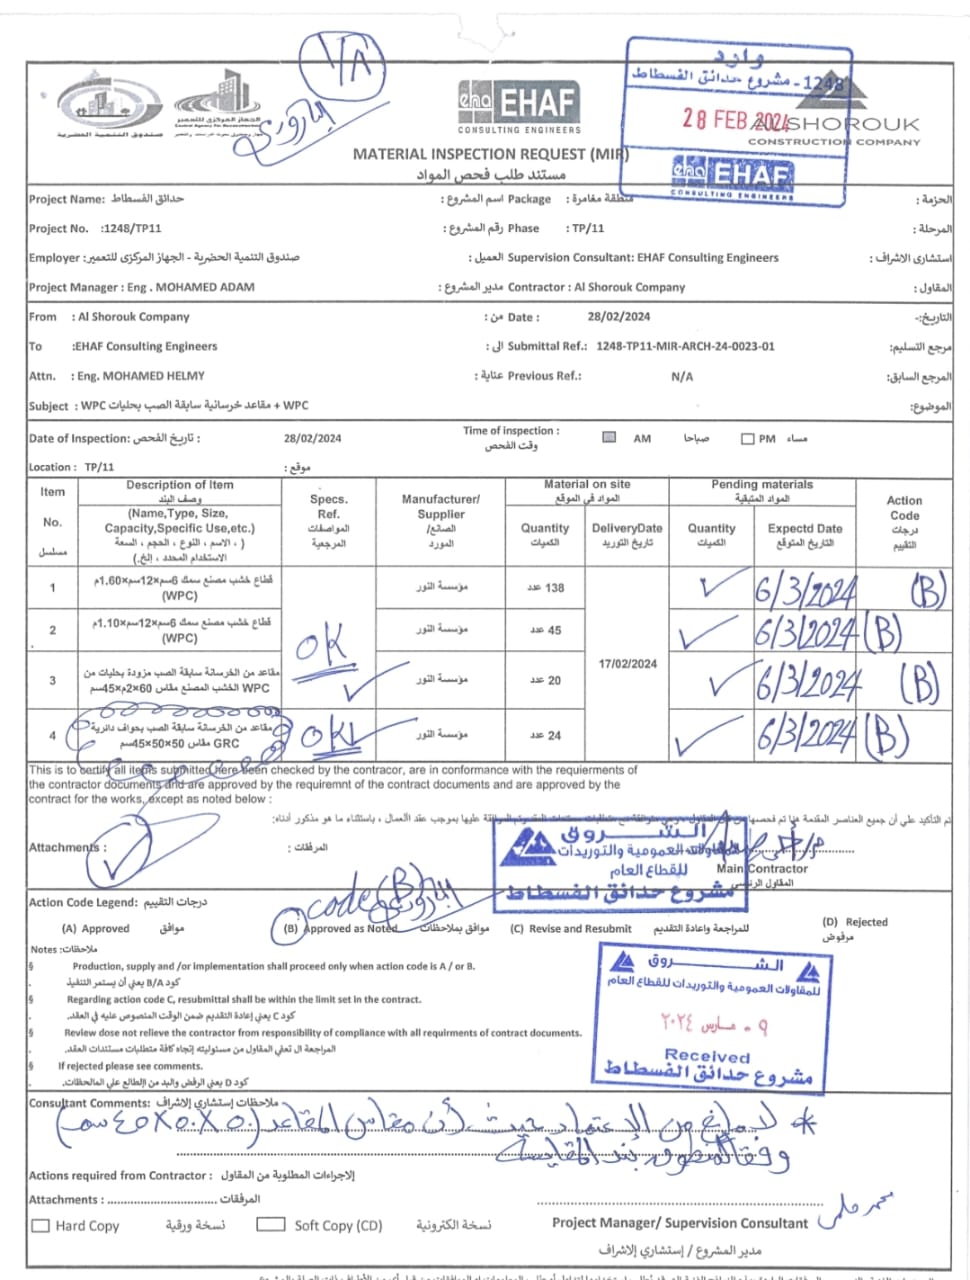 1/A
البارودى
صندوق التنمية الحضرية
الجهاز المركزى للتعمير
Central Agency for Reconstruction
eha EHAF
CONSULTING ENGINEERS
وارد
1248 - مشروع حدائق الفسطاط
28 FEB 2024
eha EHAF
CONSULTING ENGINEERS
ALSHOROUK
CONSTRUCTION COMPANY
MATERIAL INSPECTION REQUEST (MIR)
مستند طلب فحص المواد
Project Name: حدائق الفسطاط اسم المشروع : Package : منطقة مغامرة الحزمة :
Project No. :1248/TP11 رقم المشروع : Phase : TP/11 المرحلة :
Employer: صندوق التنمية الحضرية - الجهاز المركزى للتعمير العميل : Supervision Consultant: EHAF Consulting Engineers استشارى الاشراف :
Project Manager : Eng . MOHAMED ADAM مدير المشروع : Contractor : Al Shorouk Company المقاول :
From : Al Shorouk Company من : Date : 28/02/2024 التاريخ:-
To :EHAF Consulting Engineers الى : Submittal Ref.: 1248-TP11-MIR-ARCH-24-0023-01 مرجع التسليم:
Attn. : Eng. MOHAMED HELMY عناية : Previous Ref.: N/A المرجع السابق:
Subject : WPC + مقاعد خرسانية سابقة الصب بحليات WPC الموضوع:
Date of Inspection: تاريخ الفحص : 28/02/2024 Time of inspection : وقت الفحص AM صباحا PM مساء
Location : TP/11 موقع :
Item No. مسلسل
Description of Item وصف البند (Name,Type, Size, Capacity,Specific Use,etc.) ( ، الاسم ، النوع ، الحجم ، السعة الاستخدام المحدد ، إلخ.)
Specs. Ref. المواصفات المرجعية
Manufacturer/ Supplier الصانع/ المورد
Material on site المواد في الموقع
Quantity الكميات
DeliveryDate تاريخ التوريد
Pending materials المواد المتبقية
Quantity الكميات
Expectd Date التاريخ المتوقع
Action Code درجات التقييم
1 قطاع خشب مصنع سمك 6سم×12سم×1.60م (WPC) مؤسسة النور 138 عدد 6/3/2024 (B)
2 قطاع خشب مصنع سمك 6سم×12سم×1.10م (WPC) OK مؤسسة النور 45 عدد 6/3/2024 (B)
17/02/2024
3 مقاعد من الخرسانة سابقة الصب مزودة بحليات من الخشب المصنع مقاس 60×2م×45سم WPC مؤسسة النور 20 عدد 6/3/2024 (B)
4 مقاعد من الخرسانة سابقة الصب بحواف دائرية GRC مقاس 50×50×45سم OK مؤسسة النور 24 عدد 6/3/2024 (B)
This is to certify all items submitted here been checked by the contracor, are in conformance with the requierments of
the contractor documents and are approved by the requiremnt of the contract documents and are approved by the
contract for the works, except as noted below :
تم التأكيد علي أن جميع العناصر المقدمة هنا تم فحصها من المقاول عليها بموجب عقد الأعمال ، باستثناء ما هو مذكور أدناه:
Attachments : المرفقات :
الشروق
للمقاولات العمومية والتوريدات
للقطاع العام
مشروع حدائق الفسطاط
Main Contractor
المقاول الرئيسي
code (B)
البارودى
Action Code Legend: درجات التقييم
(A) Approved موافق (B) Approved as Noted موافق بملاحظات (C) Revise and Resubmit للمراجعة واعادة التقديم (D) Rejected مرفوض
Notes :ملاحظات
§ Production, supply and /or implementation shall proceed only when action code is A / or B.
. كود B/A يعني أن يستمر التنفيذ
§ Regarding action code C, resubmittal shall be within the limit set in the contract.
. كود C يعني إعادة التقديم ضمن الوقت المنصوص عليه في العقد.
§ Review dose not relieve the contractor from responsibility of compliance with all requirments of contract documents.
. المراجعة ال تعفي المقاول من مسئوليته إتجاه كافة متطلبات مستندات العقد.
§ If rejected please see comments.
. كود D يعني الرفض والبد من الإطالع علي المالحظات.
الشروق
للمقاولات العمومية والتوريدات للقطاع العام
٩ - مارس ٢٠٢٤
Received
مشروع حدائق الفسطاط
Consultant Comments: ملاحظات إستشاري الإشراف
* لا مانع من الإعتماد حيث أن مقاس المقاعد (٥٠×٥٠×٤٥ سم)
وفقا لمنطوق بند المقايسة
Actions required from Contractor : الإجراءات المطلوبة من المقاول
Attachments : ........................... المرفقات
Hard Copy نسخة ورقية Soft Copy (CD) نسخة الكترونية
Project Manager/ Supervision Consultant محمد حلمى
مدير المشروع / إستشاري الإشراف